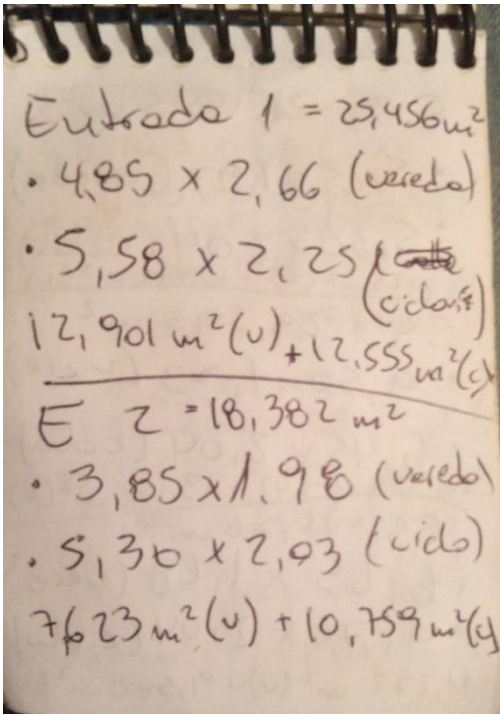 Entrada 1 = 25,456 m²
• 4,85 x 2,66 (vereda)
• 5,58 x 2,25
(ciclovía)
12,901 m² (v) + 12,555 m² (c)
E 2 = 18,382 m²
• 3,85 x 1,98 (vereda)
• 5,30 x 2,03 (ciclo)
7,623 m² (v) + 10,759 m² (c)